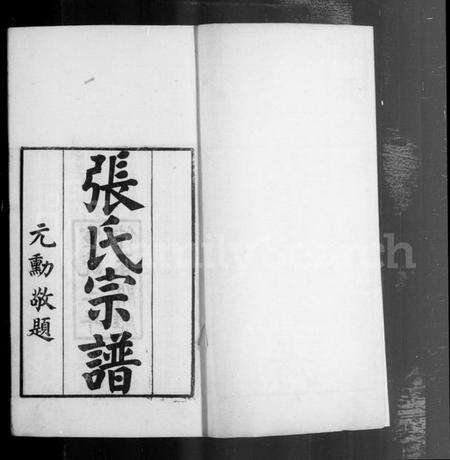 張氏宗譜
元勳敬題
FamilySearch